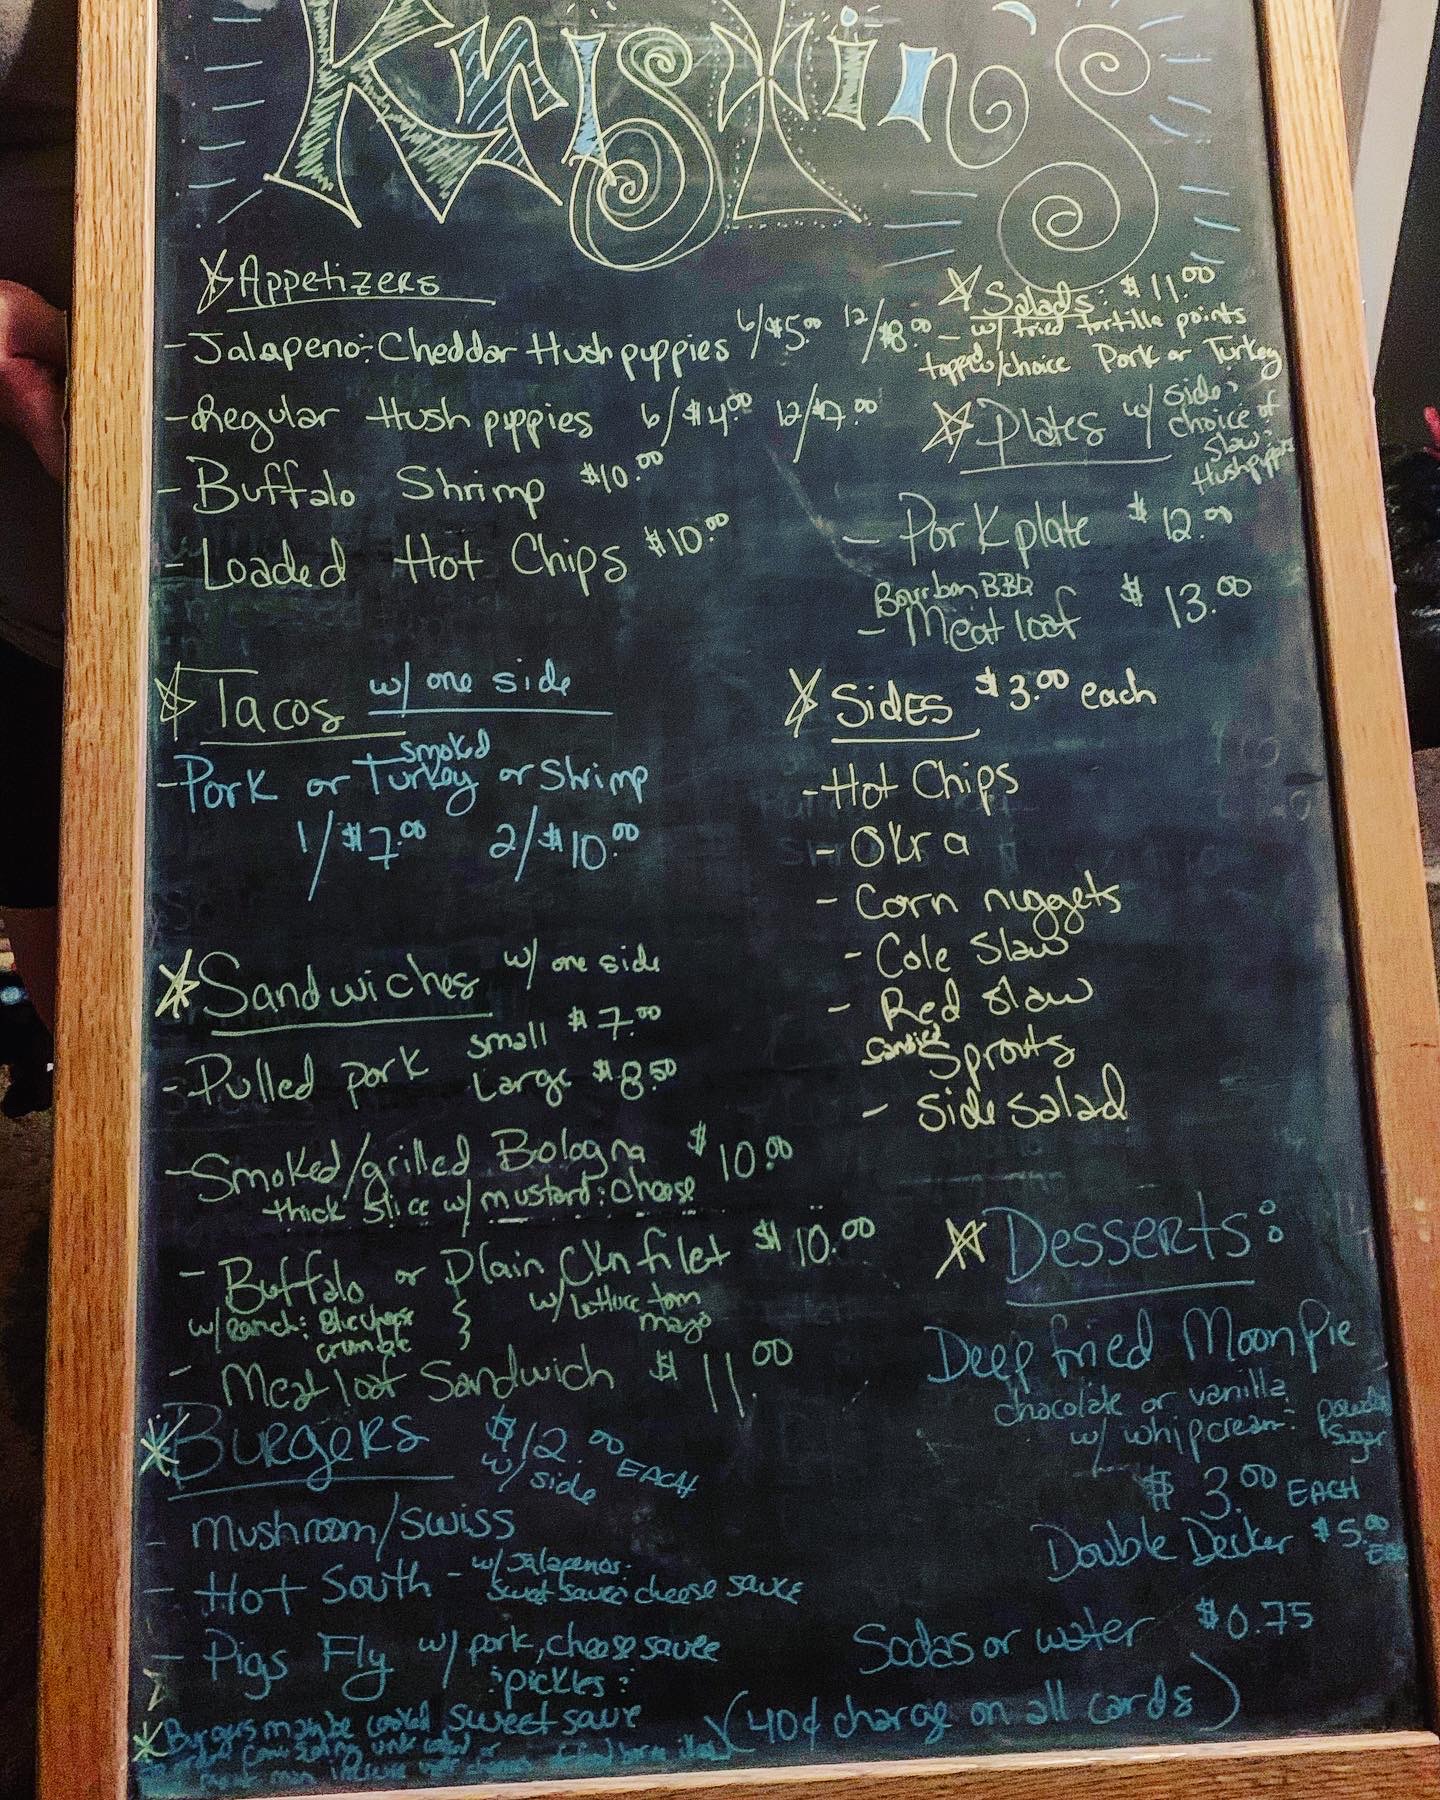 Kristin's
Appetizers
- Jalapeno: Cheddar Hushpuppies 6/$5.00 12/$8.00
- Regular Hushpuppies 6/$4.00 12/$7.00
- Buffalo Shrimp $10.00
- Loaded Hot Chips $10.00
Tacos w/ one side
- Pork or smoked Turkey or Shrimp
1/$7.00 2/$10.00
Sandwiches w/ one side
- Pulled pork small $7.00
Large $8.50
- Smoked/grilled Bologna $10.00
thick slice w/ mustard: cheese
- Buffalo or Plain Ckn filet $10.00
w/ Ranch: Blucheese
crumble
w/ lettuce tom
mayo
- Meatloaf Sandwich $11.00
Burgers $12.00 EACH
w/ side
- Mushroom/Swiss
- Hot South - w/ Jalapenos:
sweet sauce: cheese sauce
- Pigs Fly w/ pork, cheese sauce
:pickles:
sweet sauce
Burgers may be cooked
Salads: $11.00
- w/ fried tortilla points
topped w/choice Pork or Turkey
Plates w/ side:
choice of
slaw:
Hushpuppies
- Pork plate $12.00
Bourbon BBQ
- Meatloaf $13.00
Sides $3.00 each
- Hot Chips
- Okra
- Corn nuggets
- Cole Slaw
- Red slaw
Candied Sprouts
- Side salad
Desserts:
Deep fried MoonPie
chocolate or vanilla
w/ whipcream: powder
sugar
$3.00 EACH
Double Decker $5.00
Sodas or water $0.75
(40¢ charge on all cards)